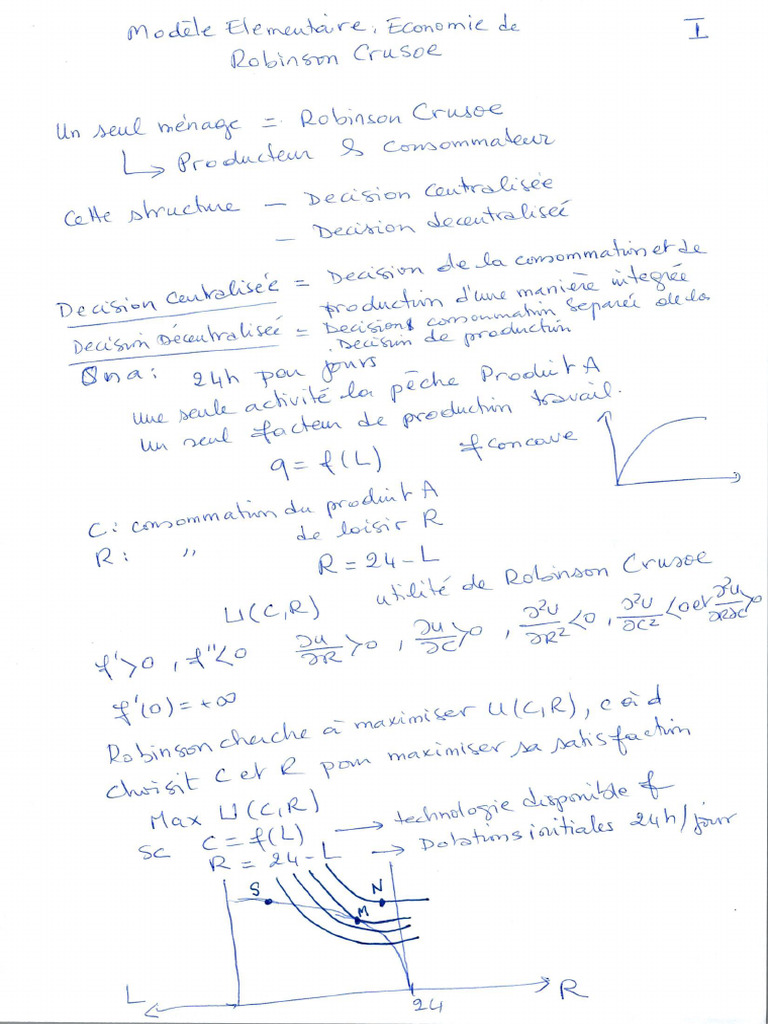 Modèle Elementaire, Economie de
Robinson Crusoe
I
Un seul ménage = Robinson Crusoe
↳ Producteur & consommateur
Cette structure – Decision centralisée
– Decision decentraliseé
Decision Centralisée = Decision de la consommation et de
production d'une manière integrée
Decision Décentralisée = Decisions consommation separée de la
Decision de production
On a : 24h par jours
une seule activité la pêche Produit A
un seul facteur de production travail.
q = f(L) f concave
C : consommation du produit A
R : " de loisir R
R = 24 - L
U(C,R) utilité de Robinson Crusoe
f' > 0 , f'' < 0 ∂u/∂R > 0 , ∂u/∂C > 0 , ∂²U/∂R² < 0 , ∂²U/∂C² < 0 et ∂²U/∂R∂C > 0
f'(0) = +∞
Robinson cherche à maximiser U(C,R), c à d
choisit C et R pour maximiser sa satisfaction
Max U(C,R)
SC C = f(L) → technologie disponible f
R = 24 - L → Dotations initiales 24h/jour
S M N
L 24 R